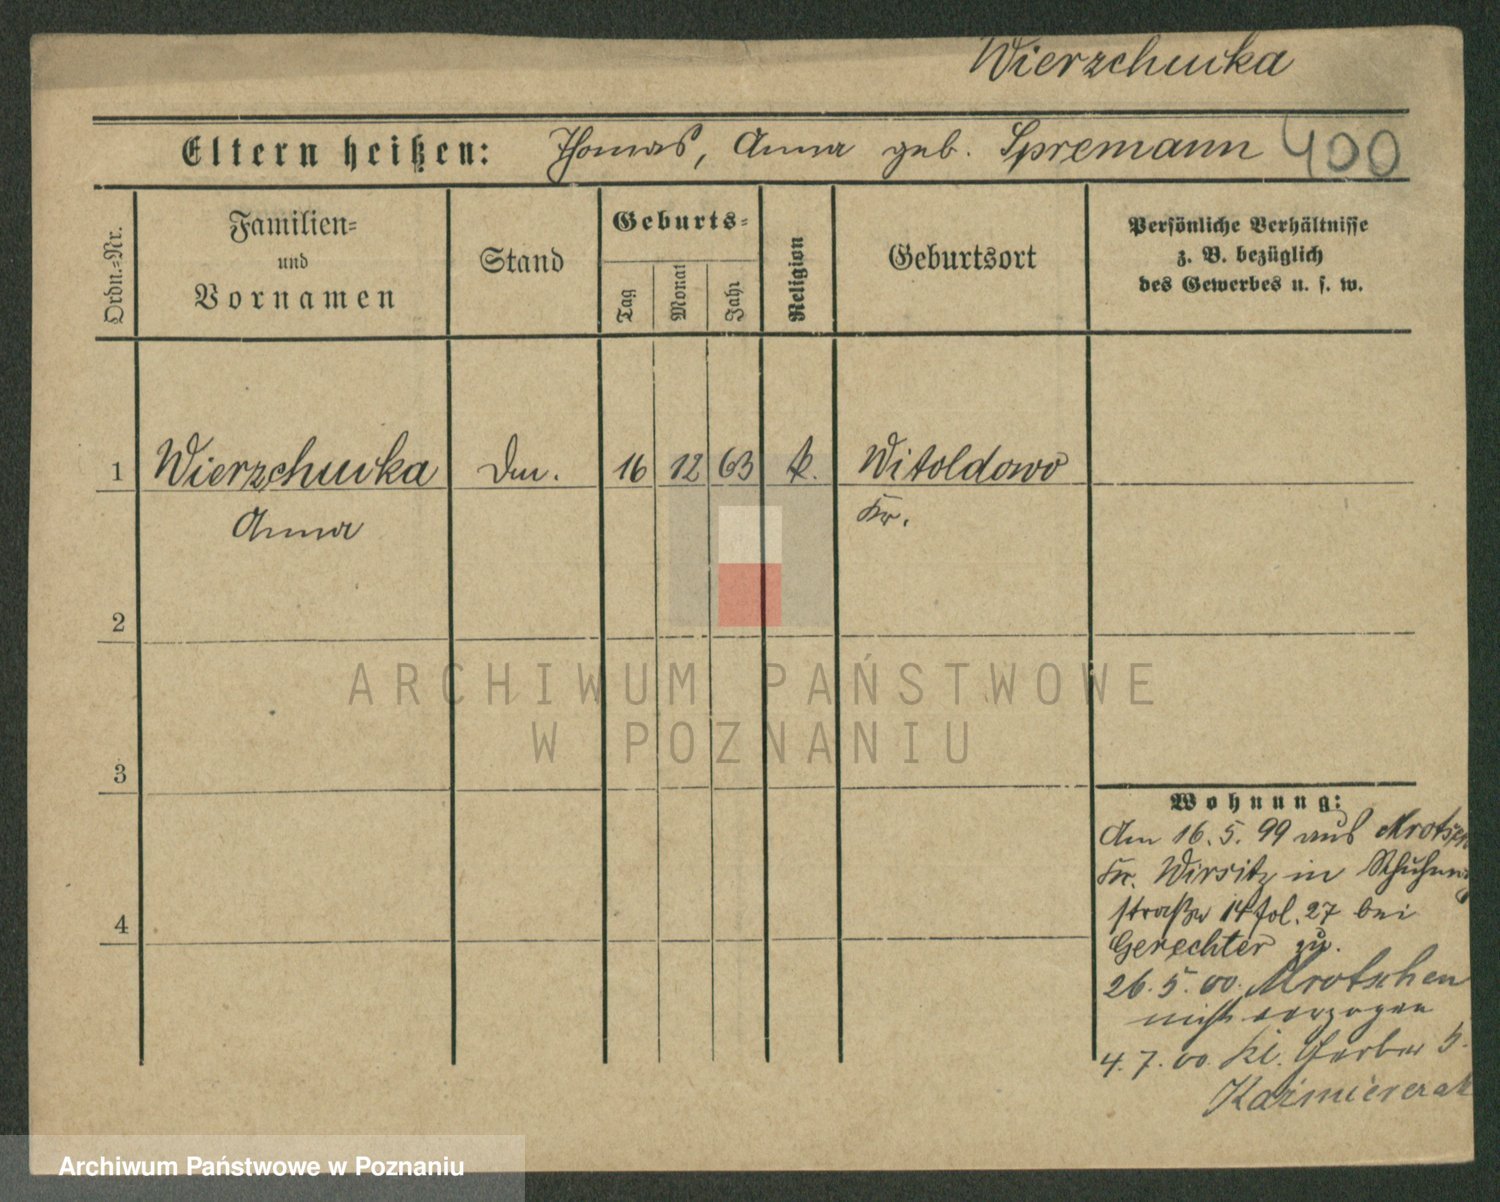 Wierzchucka
Eltern heißen: Thomas, Anna geb. Spremann 400
Ordn.=Nr.
Familien=
und
Vornamen
Stand
Geburts=
Tag
Monat
Jahr
Religion
Geburtsort
Persönliche Verhältnisse
z. B. bezüglich
des Gewerbes u. s. w.
1 Wierzchucka 16 12 63 k. Witoldowo
Anna Kr.
2
3
4
Wohnung:
Am 16. 5. 99 aus Mrotschen
Kr. Wirsitz in
straße 14 fol. 27 bei
Gerechter zu.
26. 5. 00. Mrotschen
nicht verzogen
4. 7. 00. Kl. Gerber 5.
Kazmierczak
ARCHIWUM PAŃSTWOWE
W POZNANIU
Archiwum Państwowe w Poznaniu